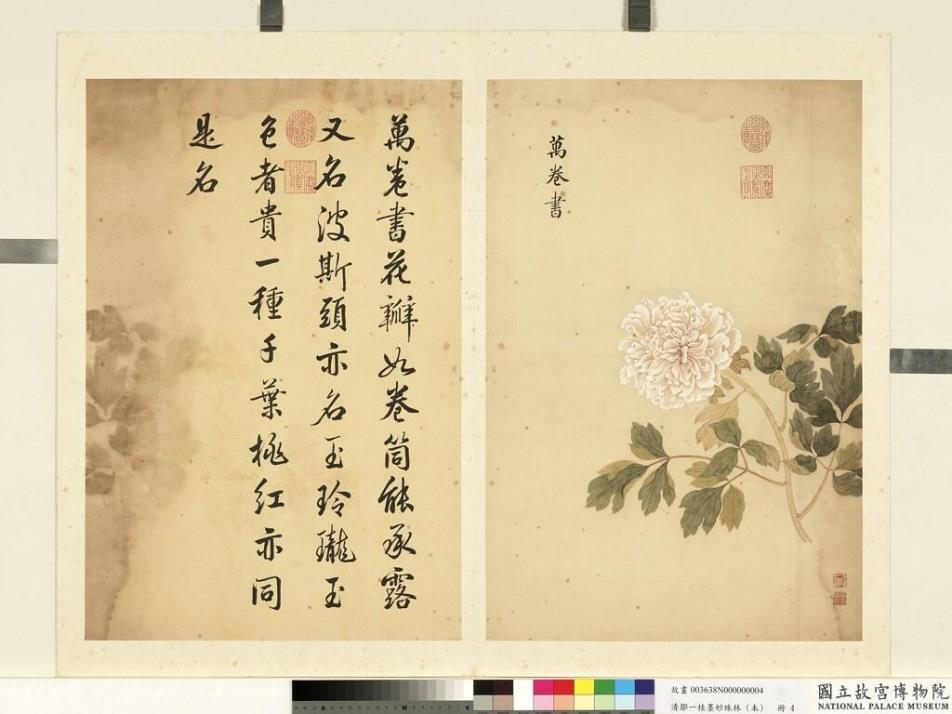 萬卷書
萬卷書花瓣如卷筒能承露
又名波斯頭亦名玉玲瓏玉
色者貴一種千葉桃紅亦同
是名
故畫 003638N000000004
清鄒一桂墨妙珠林（未） 冊 4
國立故宮博物院
NATIONAL PALACE MUSEUM